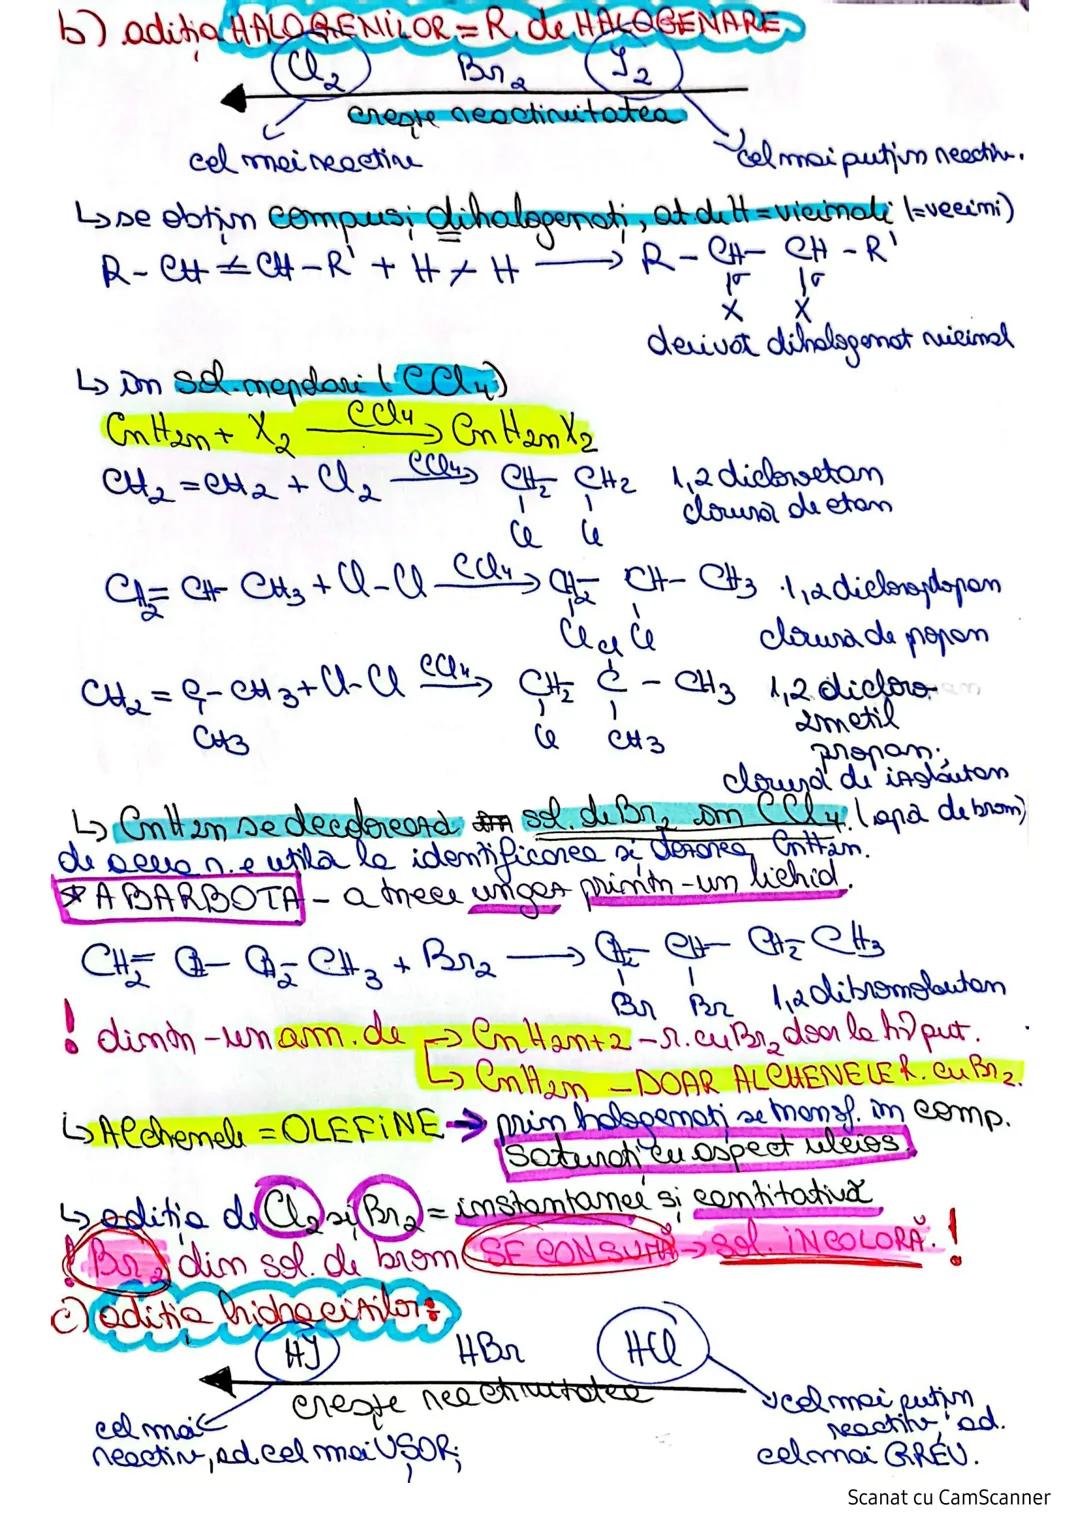 b) adiția HALOGENILOR = R. de HALOGENARE
Cl2 Br2 I2
crește reactivitatea
cel mai reactiv
cel mai puțin reactiv.
↳ se obțin compuși dihalogenați, at. de H = vicinali (=vecini)
R - CH = CH - R' + H - H ⟶ R - CH - CH - R'
X X
derivat dihalogenat vicinal
↳ în sol. nepolari (CCl4)
CnH2n + X2 CCl4⟶ CnH2nX2
CH2 = CH2 + Cl2 CCl4⟶ CH2 - CH2 1,2 dicloroetan
Cl Cl clorură de etan
CH2 = CH - CH3 + Cl - Cl CCl4⟶ CH2 - CH - CH3 1,2 dicloropropan
Cl Cl clorură de propan
Cl
CH2 = C - CH3 + Cl - Cl CCl4⟶ CH2 C - CH3 1,2 dicloro-
CH3 Cl CH3 2metil
propan;
clorură de izobutan
↳ CnH2n se decolorează sol. de Br2 în CCl4. (apă de brom)
de aceea r. e utilă la identificarea și dozarea CnH2n.
* A BARBOTA - a trece un gaz printr-un lichid.
CH2 = CH - CH2 - CH3 + Br2 ⟶ CH2 - CH - CH2 - CH3
Br Br 1,2 dibromobutan
! dintr-un am. de → CnH2n+2 - r. cu Br2 doar la hν put.
↳ CnH2n - DOAR ALCHENELE R. cu Br2.
↳ Alchenele = OLEFINE → prin halogenați se transf. în comp.
saturați cu aspect uleios
↳ adiția de Cl2 și Br2 = instantanee și cantitativă
! Br2 din sol. de brom SE CONSUMĂ → sol. INCOLORĂ. !
c) adiția hidracizilor:
HI HBr HCl
crește reactivitatea
cel mai reactiv, ad. cel mai UȘOR;
cel mai puțin reactiv, ad. cel mai GREU.
Scanat cu CamScanner